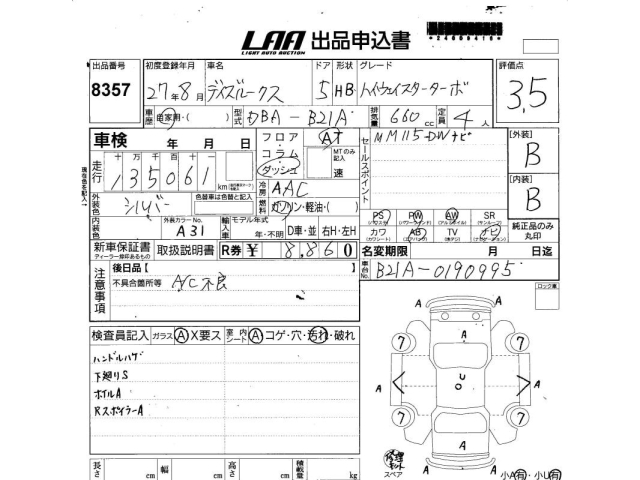 LAA 出品申込書
LIGHT AUTO AUCTION
*24609416*
出品番号 8357
初度登録年月 27年8月
車名 デイズルークス
ドア 5
形状 HB
グレード ハイウェイスターターボ
評価点 3.5
車歴 自家用・( )
型式 DBA-B21A
排気量 660 cc
定員 4 人
車検 年 月 日
走行 135061 km
十 万 千 百 十
現在色を記入
外装色 シルバー
色替車は色替と記入
外装カラーNo. A31
内装色
フロア・コラム・ダッシュ
AT
MTのみ記入 速
冷房 AAC
燃料 ガソリン・軽油・( )
輸入車 モデル年式 年・不明
D車・並 右H・左H
セールスポイント
MM115-DWナビ
PS PW AW SR
カワ AB TV ナビ
純正品のみ丸印
[外装] B
[内装] B
新車保証書
ディーラー印があるもの
取扱説明書
R券 ¥ 8,860
名変期限 月 日迄
車台No. B21A-0190995
注意事項
後日品【 】
不具合箇所等 A/C不良
ロック車
検査員記入 ガラス A X要ス 室内シート A コゲ・穴・汚れ・破れ
ハンドルハゲ
下廻りS
ホイルA
RスポイラーA
A
7 7
A A A A
7 7
A
A
修理キット
スペア
小A有・小U有
長さ cm 幅 cm 高さ cm 積載量 kg